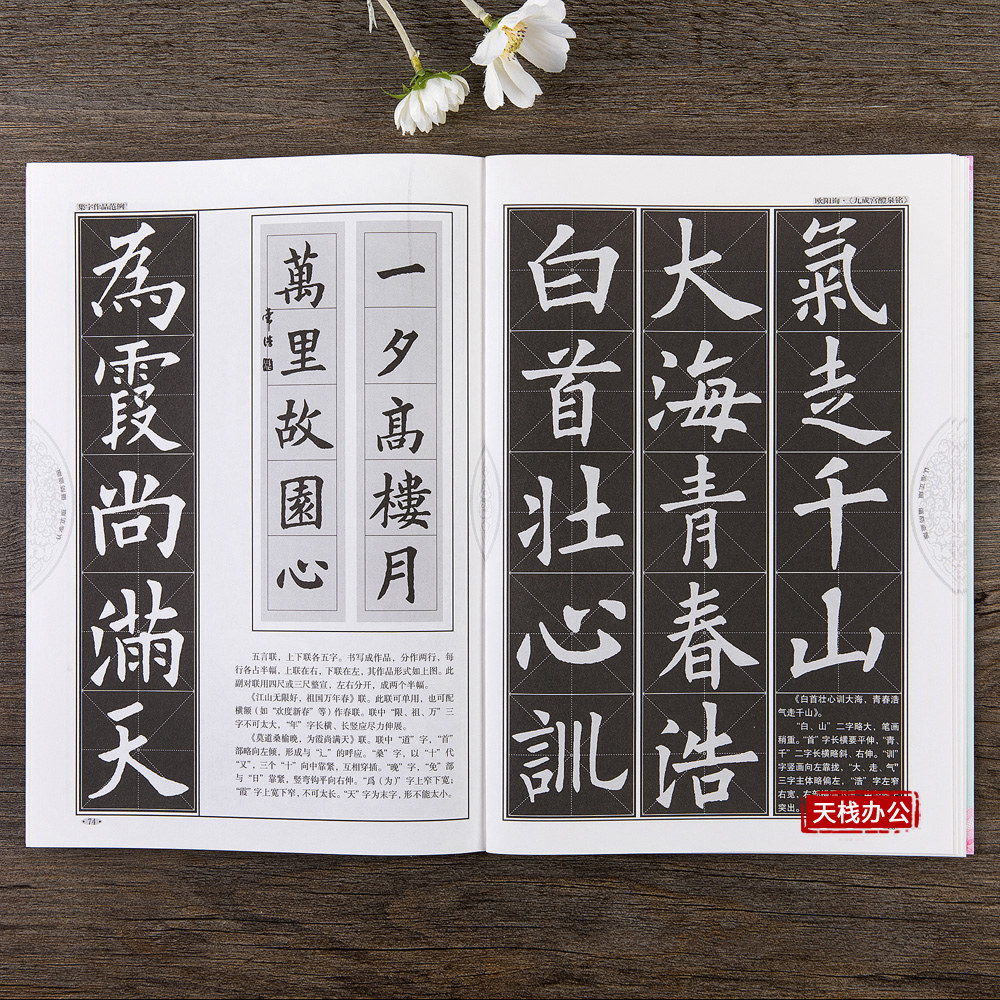 集字作品范例
為霞尚滿天
一夕高樓月
萬里故園心
五言联，上下联各五字。书写成作品，分作两行，每
行各占半幅，上联在右，下联在左，其作品形式如上图。此
副对联用四尺或三尺整宣，左右分开，成两个半幅。
《江山无限好，祖国万年春》联。此联可单用，也可配
横额（如“欢度新春”等）作春联。联中“限、祖、万”三
字不可太大，“年”字长横、长竖应尽力伸展。
《莫道桑榆晚，为霞尚满天》联。联中“道”字，“首”
部略向左倾，形成与“辶”的呼应。“桑”字，以“十”代
“又”，三个“十”向中靠紧，互相穿插。“晚”字，“免”部
与“日”靠紧，竖弯钩平向右伸。“爲（为）”字上窄下宽；
“霞”字上宽下窄，不可太长。“天”字为末字，形不能太小。
·74·
欧阳询·《九成宫醴泉铭》
白首壮心訓
大海青春浩
氣走千山
《白首壮心训大海，青春浩
气走千山》。
“白、山”二字略大，笔画
稍重。“首”字长横要平伸，“青、
千”二字长横略斜、右伸。“训”
字竖画向左靠拢，“大、走、气”
三字主体略偏左，“浩”字左窄
右宽，右
突出。
天栈办公